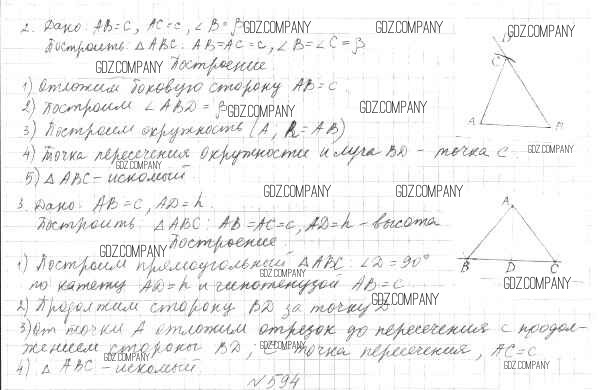 2. Дано: AB=c, AC=c, ∠B=β
GDZ.COMPANY GDZ.COMPANY
Построить: △ABC: AB=AC=c, ∠B=∠C=β
GDZ.COMPANY Построение.
1) Отложим боковую сторону AB=c.
2) Построим ∠ABD=β
GDZ.COMPANY GDZ.COMPANY
3) Построим окружность (A, R=AB)
4) Точка пересечения окружности и луча BD - точка C.
GDZ.COMPANY GDZ.COMPANY
5) △ABC - искомый
GDZ.COMPANY GDZ.COMPANY
3. Дано: AB=c, AD=h.
Построить: △ABC: AB=AC=c, AD=h - высота
GDZ.COMPANY Построение.
1) Построим прямоугольный △ABD: ∠D=90°
GDZ.COMPANY
по катету AD=h и гипотенузой AB=c
GDZ.COMPANY
2) Продолжим сторону BD за точку D
GDZ.COMPANY
3) От точки A отложим отрезок до пересечения с продол-
GDZ.COMPANY
жением стороны BD, C - точка пересечения, AC=c
GDZ.COMPANY
4) △ABC - искомый.
GDZ.COMPANY
№594
D
GDZ.COMPANY
C
A
B
A
B D C
GDZ.COMPANY